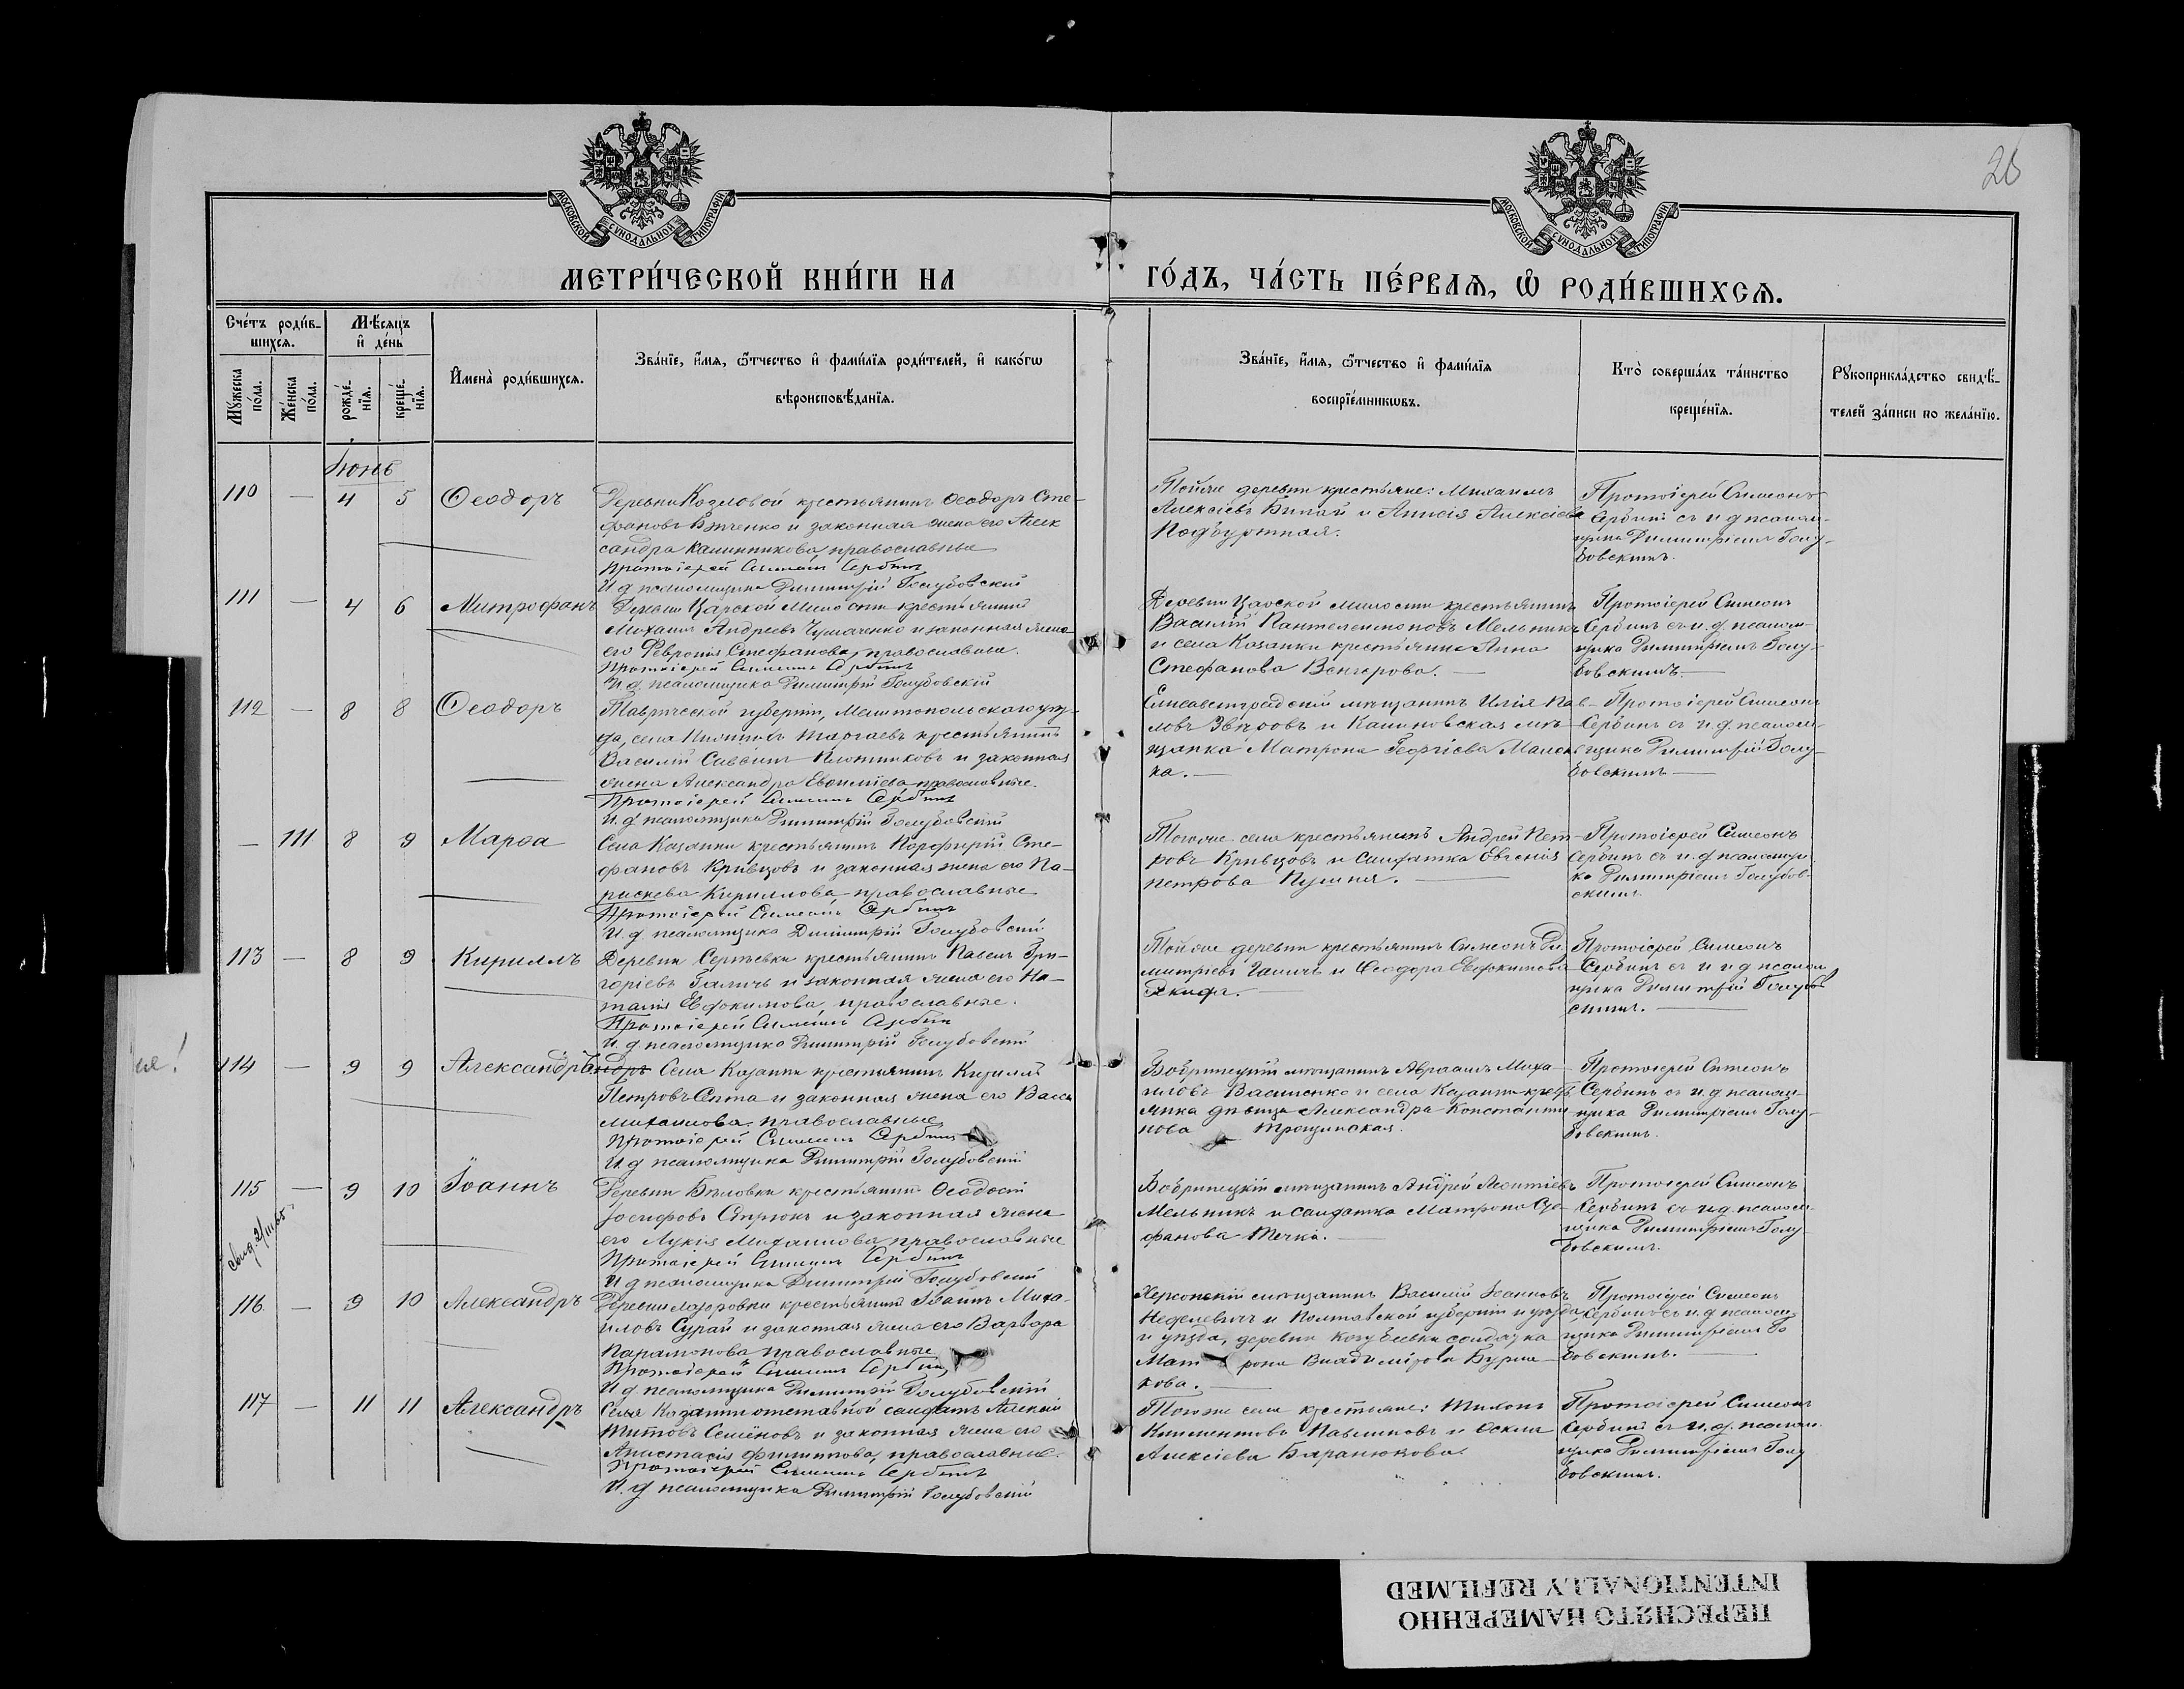 26
МОСКОВСКОЙ СУНОДАЛЬНОЙ ТИПОГРАФІИ
МОСКОВСКОЙ СУНОДАЛЬНОЙ ТИПОГРАФІИ
МЕТРИ́ЧЕСКОЙ КНИ́ГИ НА ГО́ДЪ, ЧА́СТЬ ПЕ́РВАѦ, Ѡ҆ РОДИ́ВШИХСѦ.
Сче́тъ роди́в-
шихсѧ.
Му́жеска по́ла.
Же́нска по́ла.
Мѣ́сѧцъ и҆ де́нь
рожде́нїѧ.
креще́нїѧ.
И҆мена̀ роди́вшихсѧ.
Зва́нїе, и҆́мѧ, ѻ҆́тчество и҆ фами́лїѧ роди́телей, и҆ како́гѡ
вѣроисповѣ́данїѧ.
Зва́нїе, и҆́мѧ, ѻ҆́тчество и҆ фами́лїѧ
воспрїе́мникѡвъ.
Кто̀ соверша́лъ та́инство
креще́нїѧ.
Рꙋкоприкла́дство свидѣ́-
телей за́писи по жела́нїю.
Іюнь
110 — 4 5 Ѳеодоръ
Деревни Козловой крестьянинъ Ѳеодоръ Сте-
фановъ и законная жена его Алек
сандра Калинникова, православные
Протоіерей Симеонъ Сербинъ
И. д псаломщика Димитрій Голубовскій
Той же деревни крестьяне: Михаилъ
Алексіевъ и Алексіева
Протоіерей Симеонъ
Сербинъ съ и д псалом-
щика Димитріемъ Голу-
бовскимъ.
111 — 4 6 Митрофанъ
Деревни Царской Милости крестьянинъ
Михаилъ Андреевъ Чумаченко и законная жена
его Феврония Стефанова, православные.
Протоіерей Симеонъ Сербинъ
И. д. псаломщика Димитрій Голубовскій
Деревни Царской милости крестьянинъ
Василій Пантелеимоновъ Мельникъ
и села Казанки крестьянка Анна
Стефанова Венгерова. —
Протоіерей Симеонъ
Сербинъ съ и. д. псалом-
щика Димитріемъ Голу-
бовскимъ. —
112 — 8 8 Ѳеодоръ
Таврической губерніи, Мелитопольскаго уѣз-
да, села крестьянинъ
Василій Саввинъ Плотниковъ и законная
жена Александра православные.
Протоіерей Симеонъ Сербинъ
И. д псаломщика Димитрій Голубовскій
Елисаветградскій мѣщанинъ Илія Пав-
ловъ и мѣ-
щанка Матрона Георгіева
ка. —
Протоіерей Симеонъ
Сербинъ съ и. д. псалом-
щика Димитрій Голу-
бовскимъ —
— 111 8 9 Марѳа
Села Казанки крестьянинъ Порфирій Сте-
фановъ Кривцовъ и законная жена его Па-
раскева Кириллова православные
Протоіерей Симеонъ Сербинъ
И. д. псаломщика Димитрій Голубовскій
Того же села крестьянинъ Андрей Пет-
ровъ Кривцовъ и солдатка Евгенія
Петрова —
Протоіерей Симеонъ
Сербинъ съ и. д псаломщи-
ка Димитріемъ Голубов-
скимъ.
113 — 8 9 Кириллъ
Деревни Сергѣевки крестьянинъ Павелъ Гри-
горіевъ Галичъ и законная жена его На-
талія Евфокимова, православные.
Протоіерей Симеонъ Сербинъ
И. д псаломщика Димитрій Голубовскій
Той же деревни крестьянинъ Симеонъ Ди-
митріевъ Галичъ и Ѳеодора Евфокимова
Протоіерей Симеонъ
Сербинъ съ и д псалом
щика Димитрій Голубов
скимъ. —
114 — 9 9 Александръ
Села Казанки крестьянинъ Кириллъ
Петровъ и законная жена его Васса
Михаилова, православные
Протоіерей Симеонъ Сербинъ
И. д псаломщика Димитрій Голубовскій
Бобринецкій мѣщанинъ Авраамъ Миха-
иловъ Василенко и села Казанки крестьь
янка дѣвица Александра Константи
нова
Протоіерей Симеонъ
Сербинъ съ и. д псалом-
щика Димитріемъ Голу-
бовскимъ.
115 — 9 10 Іоаннъ
свид. 2/III 65
Деревни Бѣловки крестьянинъ Ѳеодосій
Іосифовъ и законная жена
его Лукія Михаилова, православные
Протоіерей Симеонъ Сербинъ
И д псаломщика Димитрій Голубовскій
Бобринецкій мѣщанинъ Андрей Леонтіевъ
Мельникъ и солдатка Матрона Сте-
фанова —
Протоіерей Симеонъ
Сербинъ съ и д. псалом-
щика Димитріемъ Голу-
бовскимъ.
116 — 9 10 Александръ
Деревни крестьянинъ Іоаннъ Миха-
иловъ Сурай и законная жена его Варвара
Парамонова православные
Протоіерей Симеонъ Сербинъ
И д. псаломщика Димитрій Голубовскій
Херсонскій мѣщанинъ Василій Іоанновъ
и Полтавской губерніи и уѣзда,
и уѣзда, деревни солдатка
Матрона Владимірова
кова. —
Протоіерей Симеонъ
Сербинъ съ и. д псалом
щика Димитріемъ Го
бовскимъ. —
117 — 11 11 Александръ
Села Казанки отставной солдатъ Алексій
Титовъ Семёновъ и законная жена его
Анастасія Филиппова, православные.
Протоіерей Симеонъ Сербинъ
И. д псаломщика Димитрій Голубовскій
Того же села крестьяне: Тихонъ
Климентовъ и
Алексіева Баранюкова.
Протоіерей Симеонъ
Сербинъ съ и. д. псалом
щика Димитріемъ Голу
бовскимъ.
ПЕРЕСНЯТО НАМЕРЕННО
INTENTIONALLY REFILMED